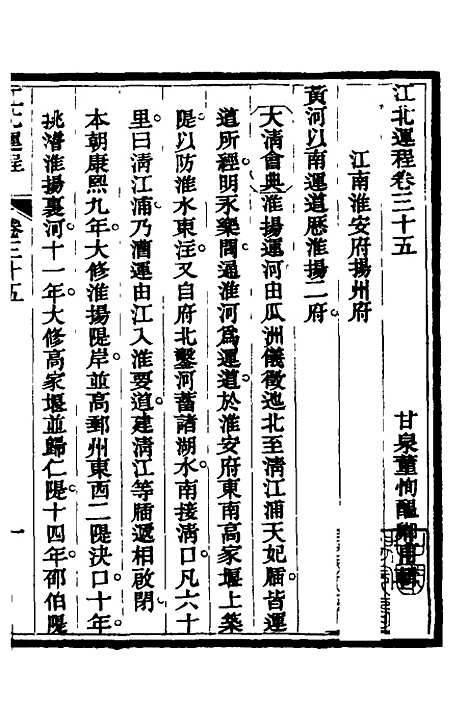 江北運程卷三十五
甘泉董恂醞卿甫輯
江南淮安府揚州府
黃河以南運道歷淮揚二府
大清會典淮揚運河由瓜洲儀徵迤北至清江浦天妃牐皆運
道所經明永樂間通淮河爲運道於淮安府東南高家堰上築
隄以防淮水東注又自府北鑿河蓄諸湖水南接清口凡六十
里曰清江浦乃漕運由江入淮要道建清江等牐遞相啟閉
本朝康熙九年大修淮揚隄岸並高郵州東西二隄決口十年
挑濬淮揚裏河十一年大修高家堰並歸仁隄十四年邵伯隄
江北運程
卷三十五
一